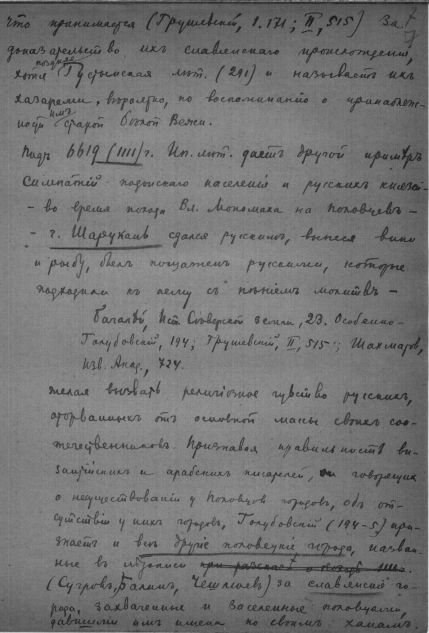 что принимается (Грушевскій, I. 171; II, 515) за
доказательство ихъ славянскаго происхожденія,
хотя поздняя Густынская лѣт. (291) и называетъ ихъ
хазарами, вѣроятно, по воспоминанію о принадлеж-
ности имъ старой Бѣлой Вежи.
Подъ 6619 (1111) г. Ип. лѣт. даетъ другой примѣръ
симпатій подонскаго населенія и русскихъ князей
- во время похода Вл. Мономаха на половцевъ -
- г. Шаруканъ сдался русскимъ, вынеся вино
и рыбу, былъ пощаженъ русскими, которые
подходили къ нему съ пѣніемъ молитвъ -
Багалѣй, Ист. Сѣверской земли, 23. Особенно
Голубовскій, 194; Грушевскій, II, 515; Шахматовъ,
Изв. Акад., 724.
желая вызвать религіозное чувство русскихъ,
оторванныхъ отъ основной массы своихъ соо-
течественниковъ. Признавая правильность ви-
зантійскихъ и арабскихъ писателей, говорящихъ
о несуществованіи у половцевъ городовъ, объ от-
сутствіи у нихъ городовъ, Голубовскій (194-5) при-
знаетъ и всѣ другіе половецкіе города, назван-
ные въ лѣтописи
(Сугровъ, Балинъ, Чешлюевъ) за славянскіе го-
рода, захваченные и заселенные половцами,
давшими имъ имена по своимъ ханамъ.